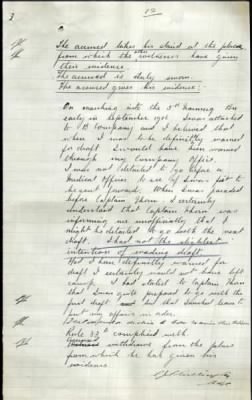 3
12
The accused takes his stand at the place
from which the other witnesses have given
their evidence.
The accused is duly sworn.
The accused gives his evidence:
On marching into the 3rd Training Bn
early in September 1916 I was attached
to B Company and I believed that
when I was to be definitely warned
for draft I would have been warned
through my Company Office.
I was not detailed to go before a
Medical Officer to see if I was fit to
be sent forward. When I was paraded
before Captain Thorn I certainly
understood that Captain Thorn was
informing me unofficially that I
might be detailed to go with the next
draft. I had not the slightest
intention of evading draft.
Had I been definitely warned for
draft I certainly would not have left
camp. I had stated to Captain Thorn
that I was quite prepared to go with the
next draft but that I wanted leave to
put my affairs in order.
Rule 83 B complied with.
Accused withdraws from the place
from which he has given his
evidence.